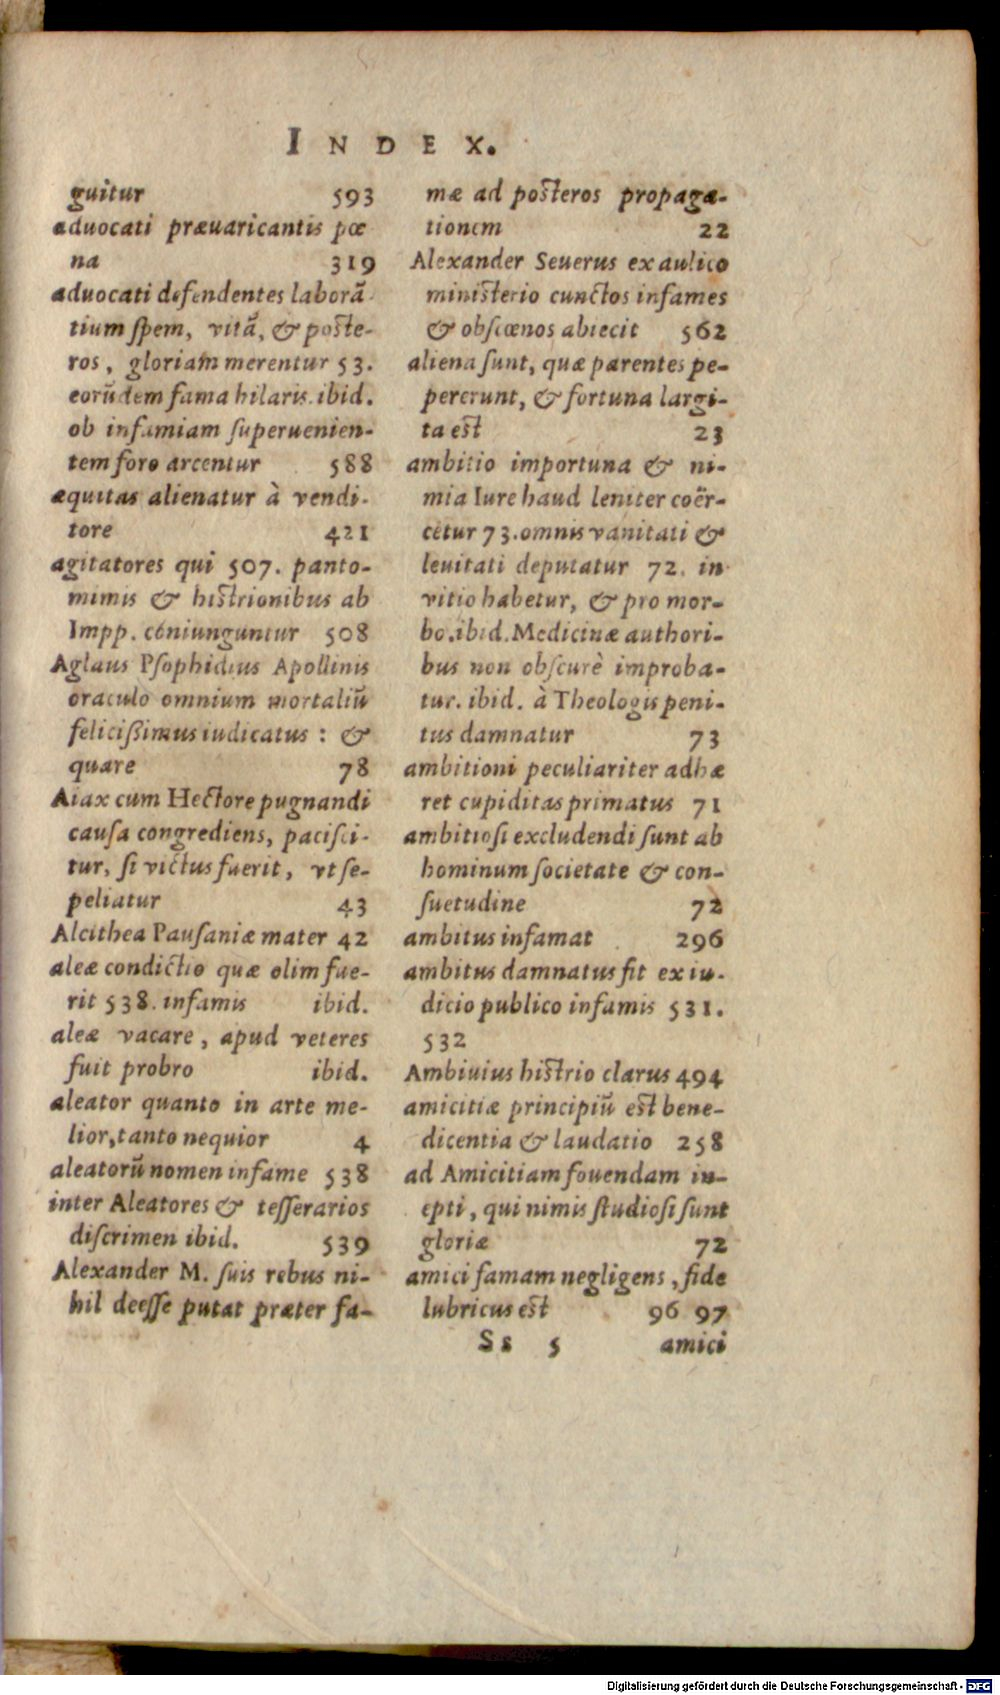 INDEX.
guitur 593
aduocati præuaricantis pœ
na 319
aduocati defendentes laborã
tium ſpem, vitã, & poſte-
ros, gloriam merentur 53.
eorũdem fama hilaris. ibid.
ob infamiam ſuperuenien-
tem foro arcentur 588
æquitas alienatur à vendi-
tore 421
agitatores qui 507. panto-
mimis & hiſtrionibus ab
Impp. coniunguntur 508
Aglaus Pſophidius Apollinis
oraculo omnium mortaliũ
feliciſſimus iudicatus: &
quare 78
Aiax cum Hectore pugnandi
cauſa congrediens, paciſci-
tur, ſi victus fuerit, vt ſe-
peliatur 43
Alcithea Pauſaniæ mater 42
aleæ condictio quæ olim fue-
rit 538. infamis ibid.
aleæ vacare, apud veteres
fuit probro ibid.
aleator quanto in arte me-
lior, tanto nequior 4
aleatorũ nomen infame 538
inter Aleatores & teſſerarios
diſcrimen ibid. 539
Alexander M. ſuis rebus ni-
hil deeſſe putat præter fa-
mæ ad poſteros propaga-
tionem 22
Alexander Seuerus ex aulico
miniſterio cunctos infames
& obſcœnos abiecit 562
aliena ſunt, quæ parentes pe-
pererunt, & fortuna largi-
ta eſt 23
ambitio importuna & ni-
mia Iure haud leniter coër-
cetur 73. omnis vanitati &
leuitati deputatur 72. in
vitio habetur, & pro mor-
bo. ibid. Medicinæ authori-
bus non obſcurè improba-
tur. ibid. à Theologis peni-
tus damnatur 73
ambitioni peculiariter adhæ
ret cupiditas primatus 71
ambitioſi excludendi ſunt ab
hominum ſocietate & con-
ſuetudine 72
ambitus infamat 296
ambitus damnatus fit ex iu-
dicio publico infamis 531.
532
Ambiuius hiſtrio clarus 494
amicitiæ principiũ eſt bene-
dicentia & laudatio 258
ad Amicitiam fouendam in-
epti, qui nimis ſtudioſi ſunt
gloriæ 72
amici famam negligens, fide
lubricus eſt 96 97
Ss 5 amici
Digitalisierung gefördert durch die Deutsche Forschungsgemeinschaft - DFG